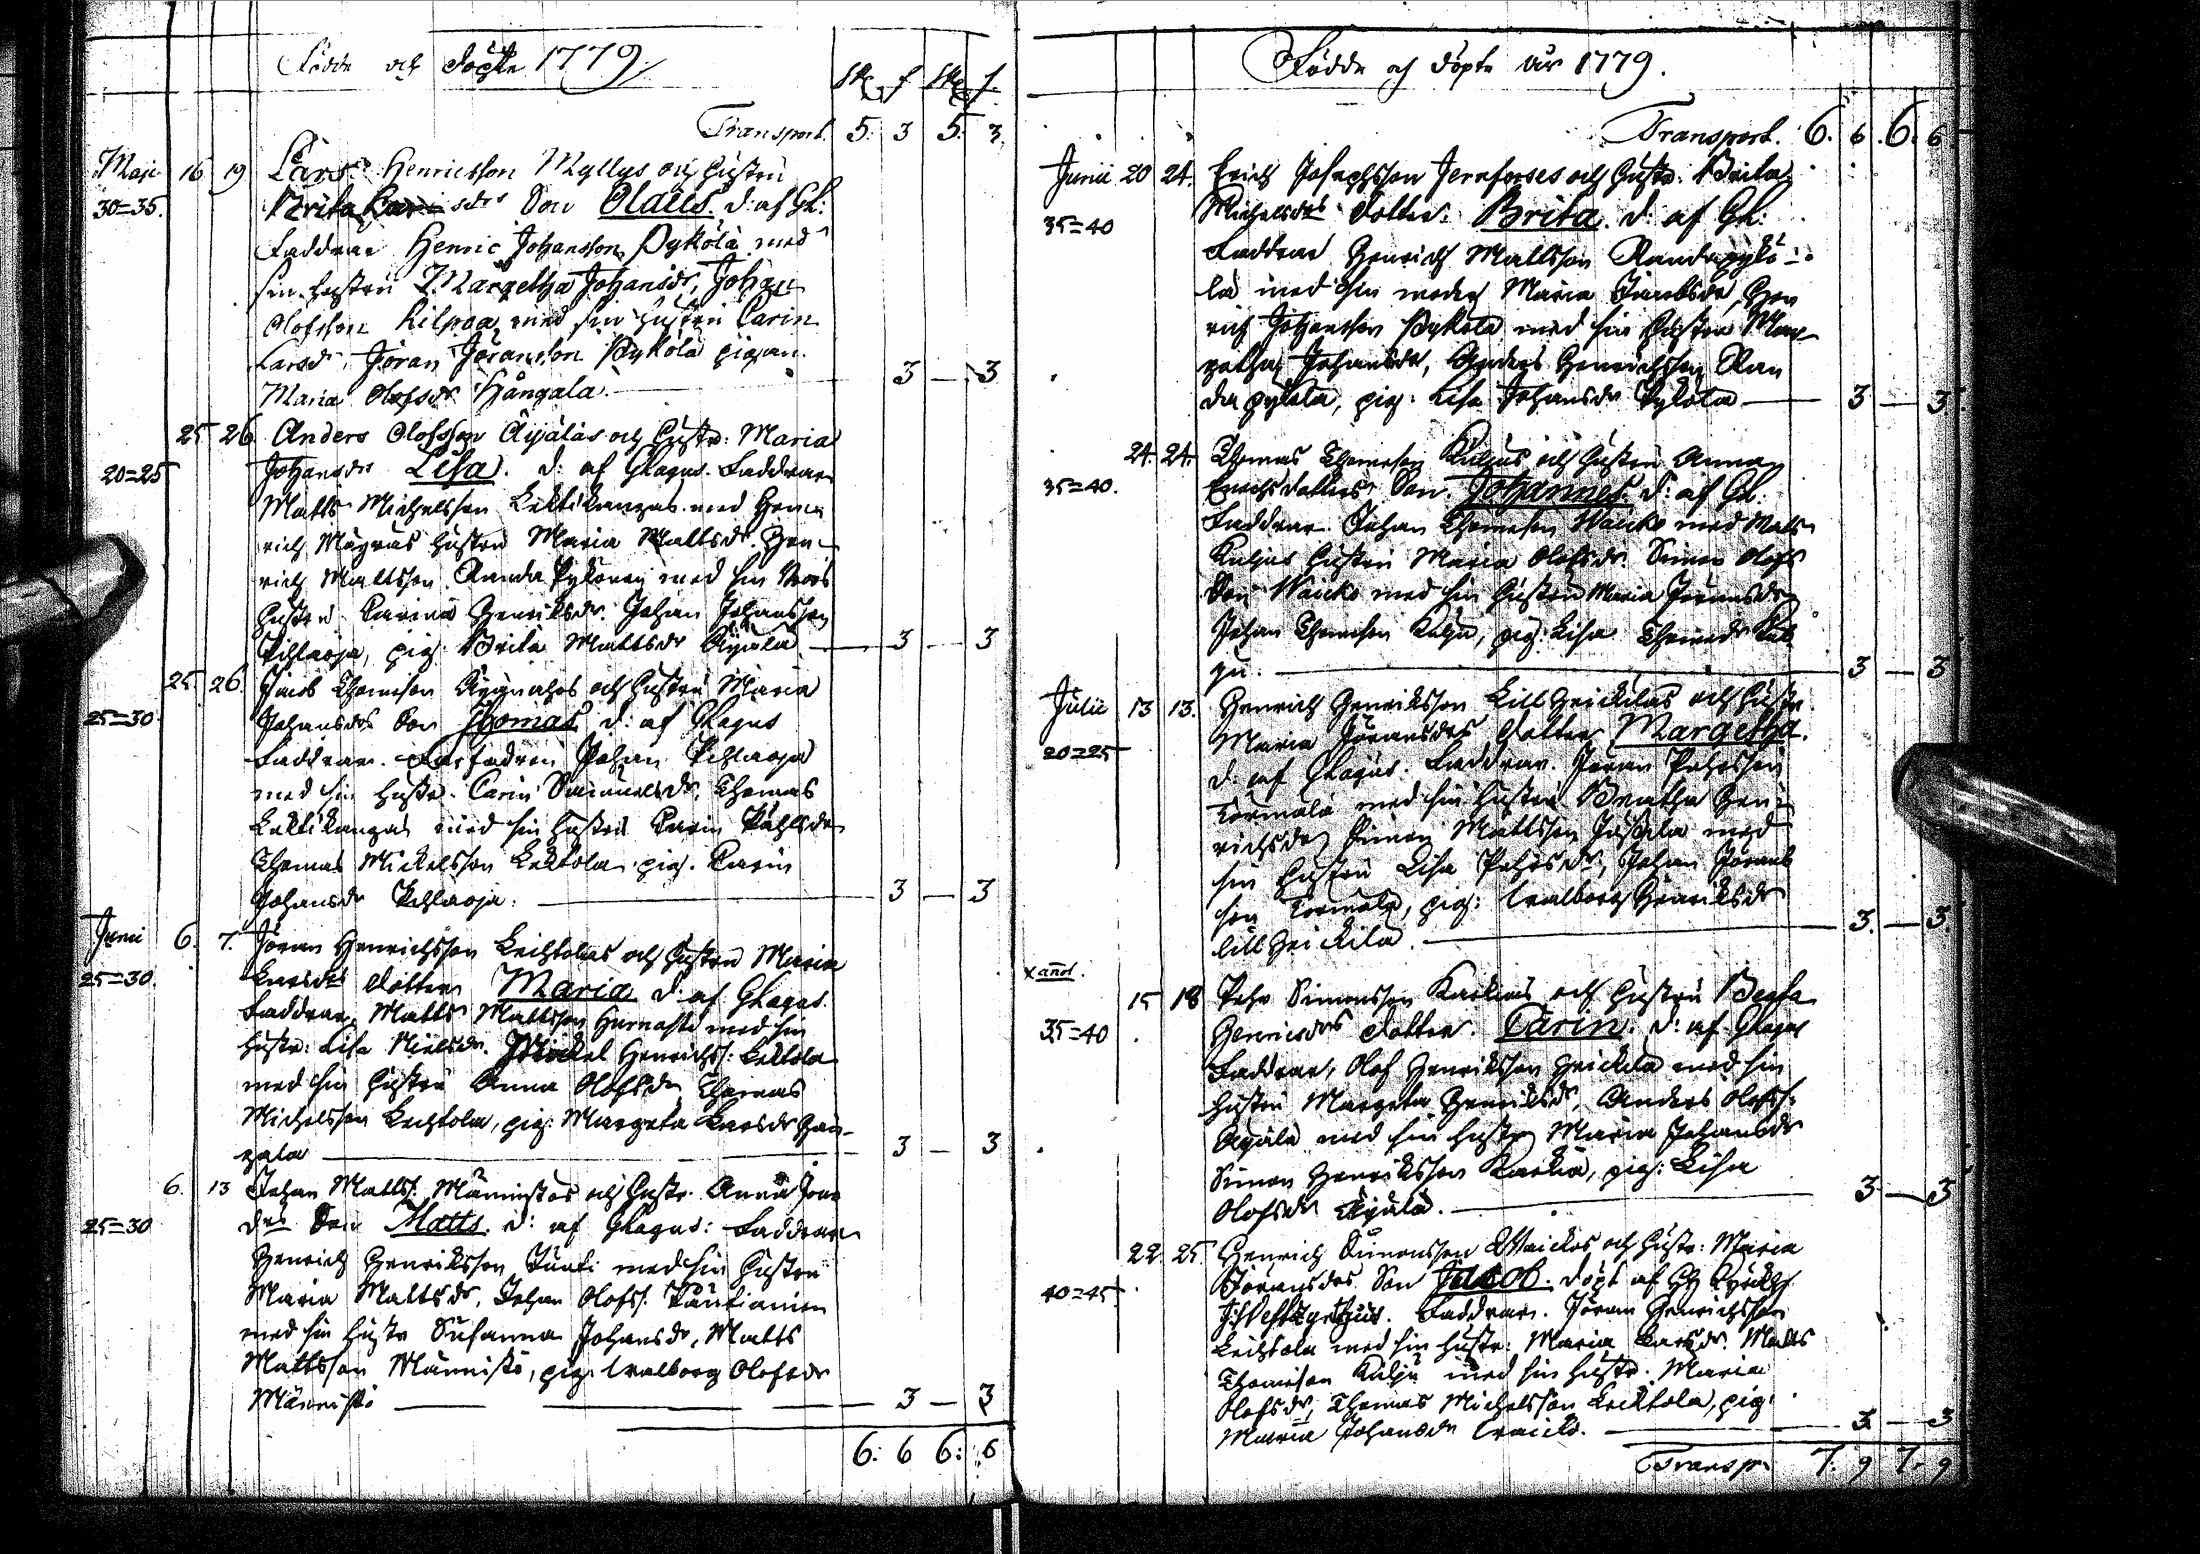 Födde och Döpte 1779
Sk f Sk f
Transport. 5: 3 5: 3.
Maji 16 19 Lars Henricsson Myllys och hustru
30=35. Brita Larsdrs Son Olaus. d: af Gl:
Faddrar Henric Johansson Pykölä med
sin hustru Margetha Johansdr, Johan
Olofsson Kilpaa med sin hustru Carin
Larsdr, Jöran Jöransson Pykölä pigan
Maria Olofsdr Hångala. 3 — 3
25 26 Anders Olofsson Äyäläs och hustr: Maria
20=25 Johansdrs Lisa. d: af Glagus. Faddrar
Matts Michelsson Lektikangas med Hen
rich hustru Maria Mattsdr. Hen-
rich Mattsson Randa med sin
hustru Carina Henriksdr. Johan Johansson
Pihlaoja, pig: Brita Mattsdr Äyälä — 3 — 3
25. 26. Jacob Thomsson och hustru Maria
25=30 Johansdrs Son Thomas d: af Glagus
Faddrar. Farfadren Johan Pihlaoja
med sin hustr. Carin Samuelsdr, Thomas
Lektikangas med sin hustru Carin Påhlsdr
Thomas Mickelsson Lektola pig. Carin
Johansdr Pihlaoja. — 3 — 3
Juni 6. 7. Jöran Henrichsson Lechtolas och hustru Maria
25=30. Larsdrs dotter Maria d: af Glagus.
Faddrar, Matts Mattsson Hurnasti med sin
hustr: Lisa Nielsdr. Mickel Henrichss: Lektola
med sin hustru Anna Olofsdr Thomas
Michelsson Lechtola, pig: Margeta Larsdr Hån-
gala — 3 — 3
6. 13 Johan Mattss: Männistös och hustr. Anna
25=30 drs Son Matts. d: af Glagus: Faddrar
Henrich Henriksson med sin hustru
Maria Mattsdr, Johan Olofss. Tautianien
med sin hustr Susanna Johansdr, Matts
Mattsson Männistö, pig: Walborg Olofsdr
Männistö — 3 — 3
6: 6 6: 6
Födde och döpte år 1779.
Transport. 6. 6 6. 6
Junii 20 24. Erich Josephsson Jernforses och hustr. Brita
35=40 Michelsdrs dotter: Brita. d: af Gl:
Faddrar Henrich Mattsson Randapykö-
lä med sin moder Maria Jacobsdr, Hen
rich Johansson Pykölä med sin hustru Mar-
getha Johansdr, Anders Henrichsson Ran
da pykölä, pig: Lisa Johansdr Pykölä — 3 — 3
24. 24. Thomas Thomsson Kuljus och hustru Anna
35=40. Erichsdotters Son. Johannes. d: af Gl.
Faddrar. Johan Thomsson Waicko med Mats
Kuljus hustru Maria Olofsdr. Simon Olofs
Son Waicko med sin hustru Maria Jöransdr
Johan Thomsson Kulju, pig: Lisa Thomsdr Kul
ju. — 3 — 3
Julii 13 13. Henrich Henriksson Lillheickilas och hustr.
20=25 Maria Jöransdrs dotter Margetha.
d: af Glagus. Faddrar. Jöran Pehrsson
Tormälä med sin hustru Beatha Hen-
richsdr Simon Mattsson Jussila med
sin hustru Lisa Pehrsdr, Johan Jörans
son Tormälä, pig: Walborg Henriksdr
Lillheickilä. — 3. — 3.
x
15 18 Pehr Simonsson Karkius och hustru Beata
35=40 Henricsdrs dotter. Carin. d: af Glagus
Faddrar, Olof Henriksson Heickilä med sin
hustru Margeta Henriksdr, Anders Olofss.
Äyälä med sin hustru Maria Johansdr
Simon Henriksson Karkia, pig: Lisa
Olofsdr Äyälä. — 3 — 3
22 25 Henrich Simonsson Waickos och hustr: Maria
40=45 Jöransdrs Son Jacob. döpt af
Faddrar. Jöran Henrichsson
Lechtola med sin hustr: Maria Larsdr. Matts
Thomsson Kulju med sin hustr. Maria
Olofsdr, Thomas Michelsson Lecktola, pig:
Maria Johansdr Waicko. — 3 — 3
Transp. 7. 9 7. 9